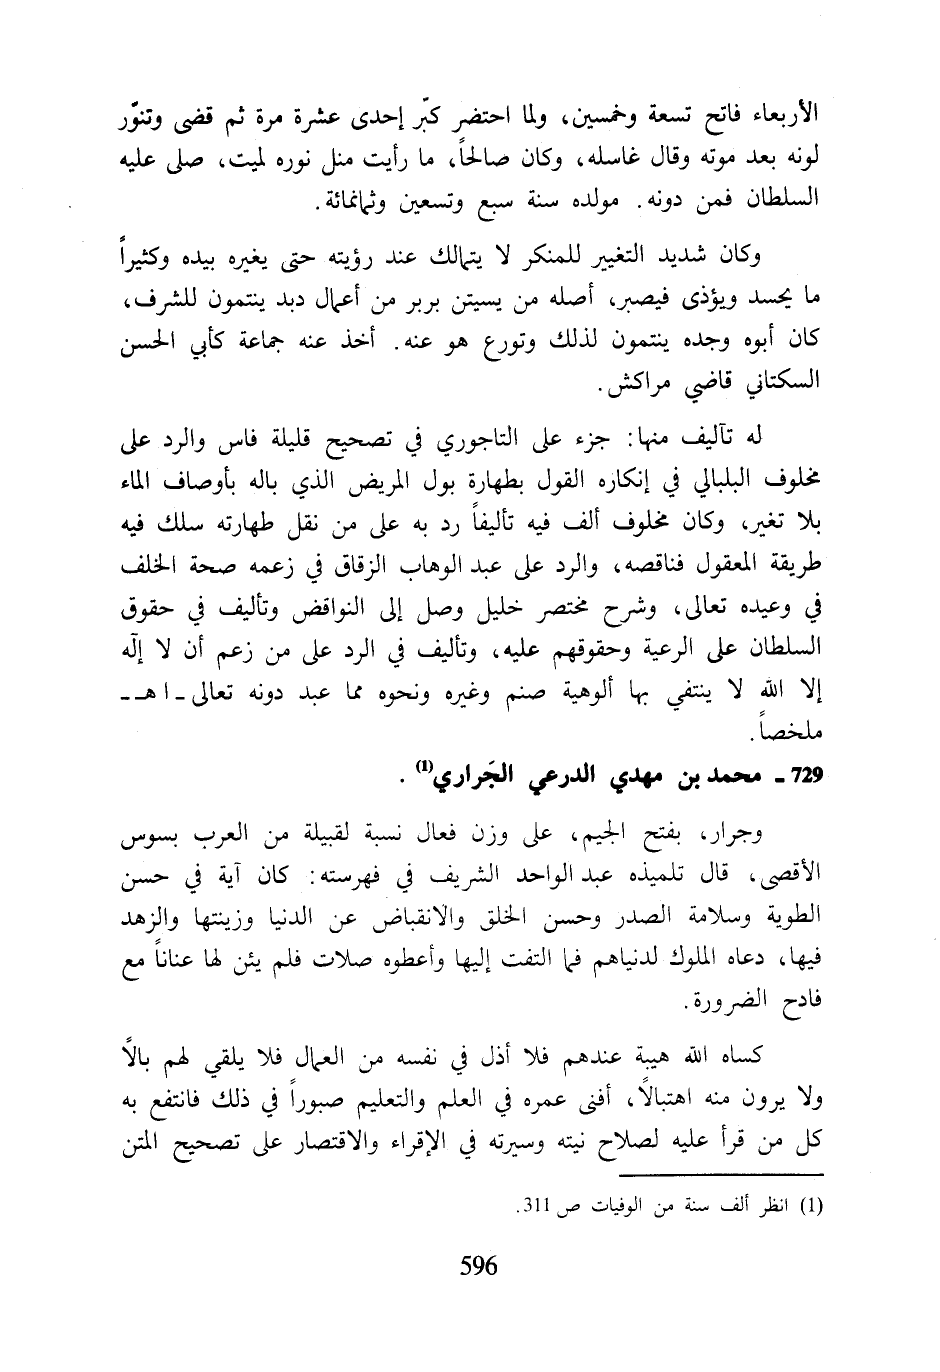 الأربعاء فاتح تسعة وخمسين، ولما احتضر كبّر إحدى عشرة مرة ثم قضى وتنوّر
لونه بعد موته وقال غاسله، وكان صالحاً، ما رأيت مثل نوره لميت، صلى عليه
السلطان فمن دونه. مولده سنة سبع وتسعين وثمانمائة.
وكان شديد التغيير للمنكر لا يتمالك عند رؤيته حتى يغيره بيده وكثيراً
ما يحسد ويؤذى فيصبر، أصله من يسيتن بربر من أعمال دبد ينتمون للشرف،
كان أبوه وجده ينتمون لذلك وتورع هو عنه. أخذ عنه جماعة كأبي الحسن
السكتاني قاضي مراكش.
له تآليف منها: جزء على التاجوري في تصحيح قليلة فاس والرد على
مخلوف البلبالي في إنكاره القول بطهارة بول المريض الذي باله بأوصاف الماء
بلا تغير، وكان مخلوف ألف فيه تأليفاً رد به على من نقل طهارته سلك فيه
طريقة المعقول فناقصه، والرد على عبد الوهاب الزقاق في زعمه صحة الخلف
في وعيده تعالى، وشرح مختصر خليل وصل إلى النواقض وتأليف في حقوق
السلطان على الرعية وحقوقهم عليه، وتأليف في الرد على من زعم أن لا إلٰه
إلا الله لا ينتفي بها ألوهية صنم وغيره ونحوه مما عبد دونه تعالى ـ ا هـ ـ
ملخصاً.
729 ـ محمد بن مهدي الدرعي الجَراري(1) .
وجرار، بفتح الجيم، على وزن فعال نسبة لقبيلة من العرب بسوس
الأقصى، قال تلميذه عبد الواحد الشريف في فهرسته: كان آية في حسن
الطوية وسلامة الصدر وحسن الخلق والانقباض عن الدنيا وزينتها والزهد
فيها، دعاه الملوك لدنياهم فما التفت إليها وأعطوه صلات فلم يثن لها عناناً مع
فادح الضرورة.
كساه الله هيبة عندهم فلا أذل في نفسه من العمال فلا يلقي لهم بالاً
ولا يرون منه اهتبالاً، أفنى عمره في العلم والتعليم صبوراً في ذلك فانتفع به
كل من قرأ عليه لصلاح نيته وسيرته في الإقراء والاقتصار على تصحيح المتن
(1) انظر ألف سنة من الوفيات ص 311.
596